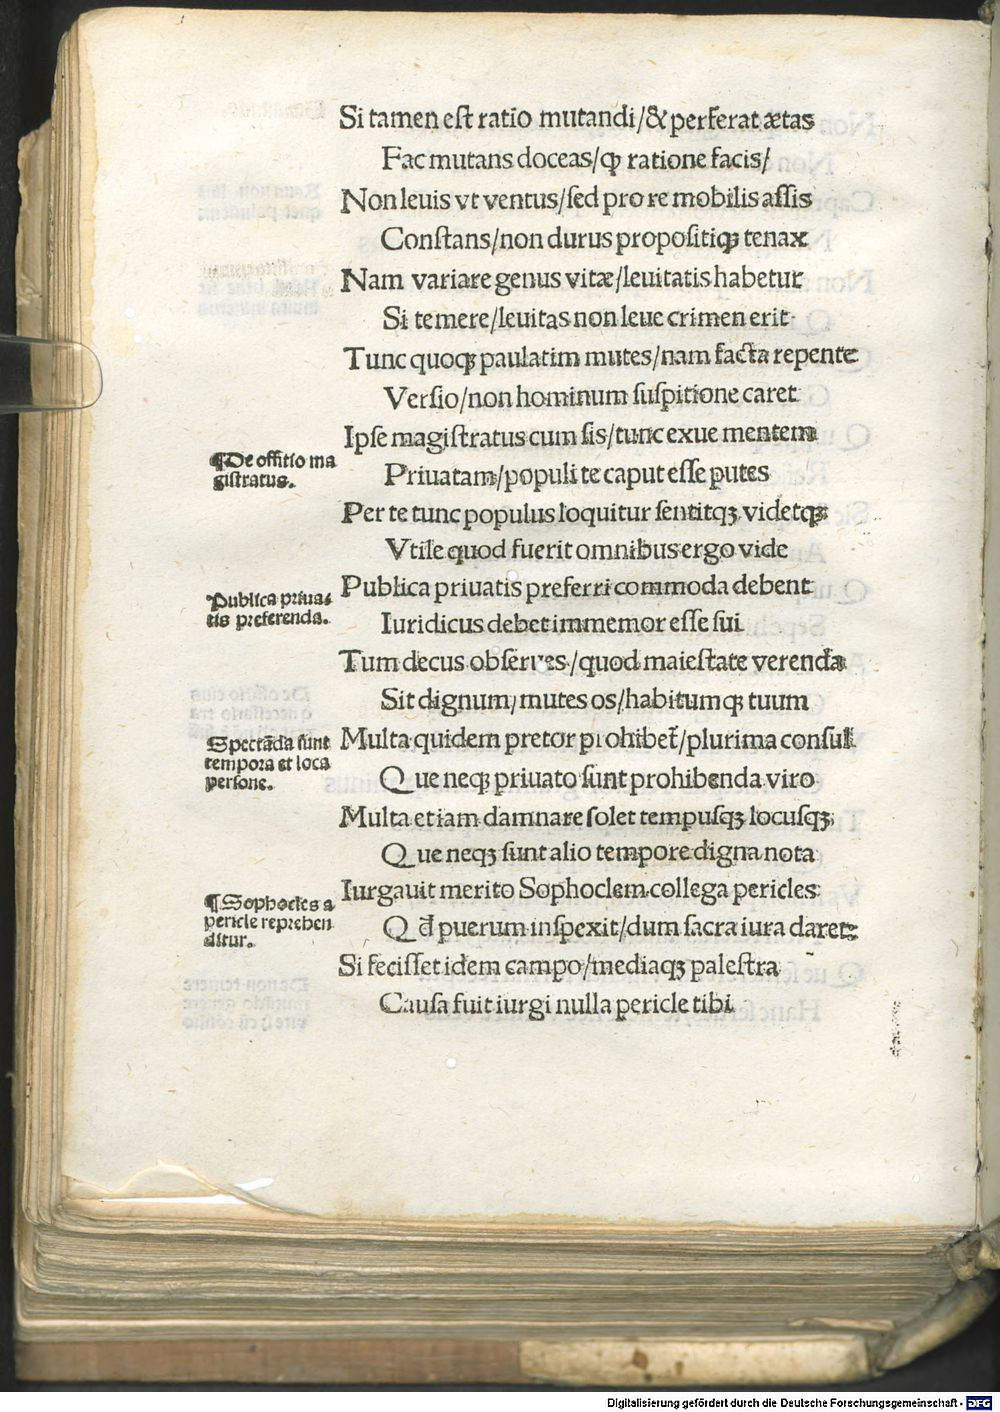 Si tamen est ratio mutandi/& perferat ætas
Fac mutans doceas/ꝙ ratione facis/
Non leuis vt ventus/sed pro re mobilis assis
Constans/non durus propositiqꝫ tenax
Nam variare genus vitæ/leuitatis habetur
Si temere/leuitas non leue crimen erit
Tunc quoqꝫ paulatim mutes/nam facta repente
Versio/non hominum suspitione caret
Ipse magistratus cum sis/tunc exue mentem
¶De offitio ma
gistratus.
Priuatam/populi te caput esse putes
Per te tunc populus loquitur sentitqꝫ videtqꝫ
Vtile quod fuerit omnibus ergo vide
Publica priuatis preferri commoda debent
Publica priua⸗
tis preferenda.
Iuridicus debet immemor esse sui
Tum decus obserues/quod maiestate verenda
Sit dignum/mutes os/habitumqꝫ tuum
Multa quidem pretor prohibet/plurima consul
Spectāda sunt
tempora et loca
persone.
Que neqꝫ priuato sunt prohibenda viro
Multa etiam damnare solet tempusqꝫ locusqꝫ
Que neqꝫ sunt alio tempore digna nota
Iurgauit merito Sophoclem collega pericles
¶Sophocles a
pericle reprehen
ditur.
Qđ puerum inspexit/dum sacra iura daret
Si fecisset idem campo/mediaqꝫ palestra
Causa fuit iurgi nulla pericle tibi
Digitalisierung gefördert durch die Deutsche Forschungsgemeinschaft - DFG